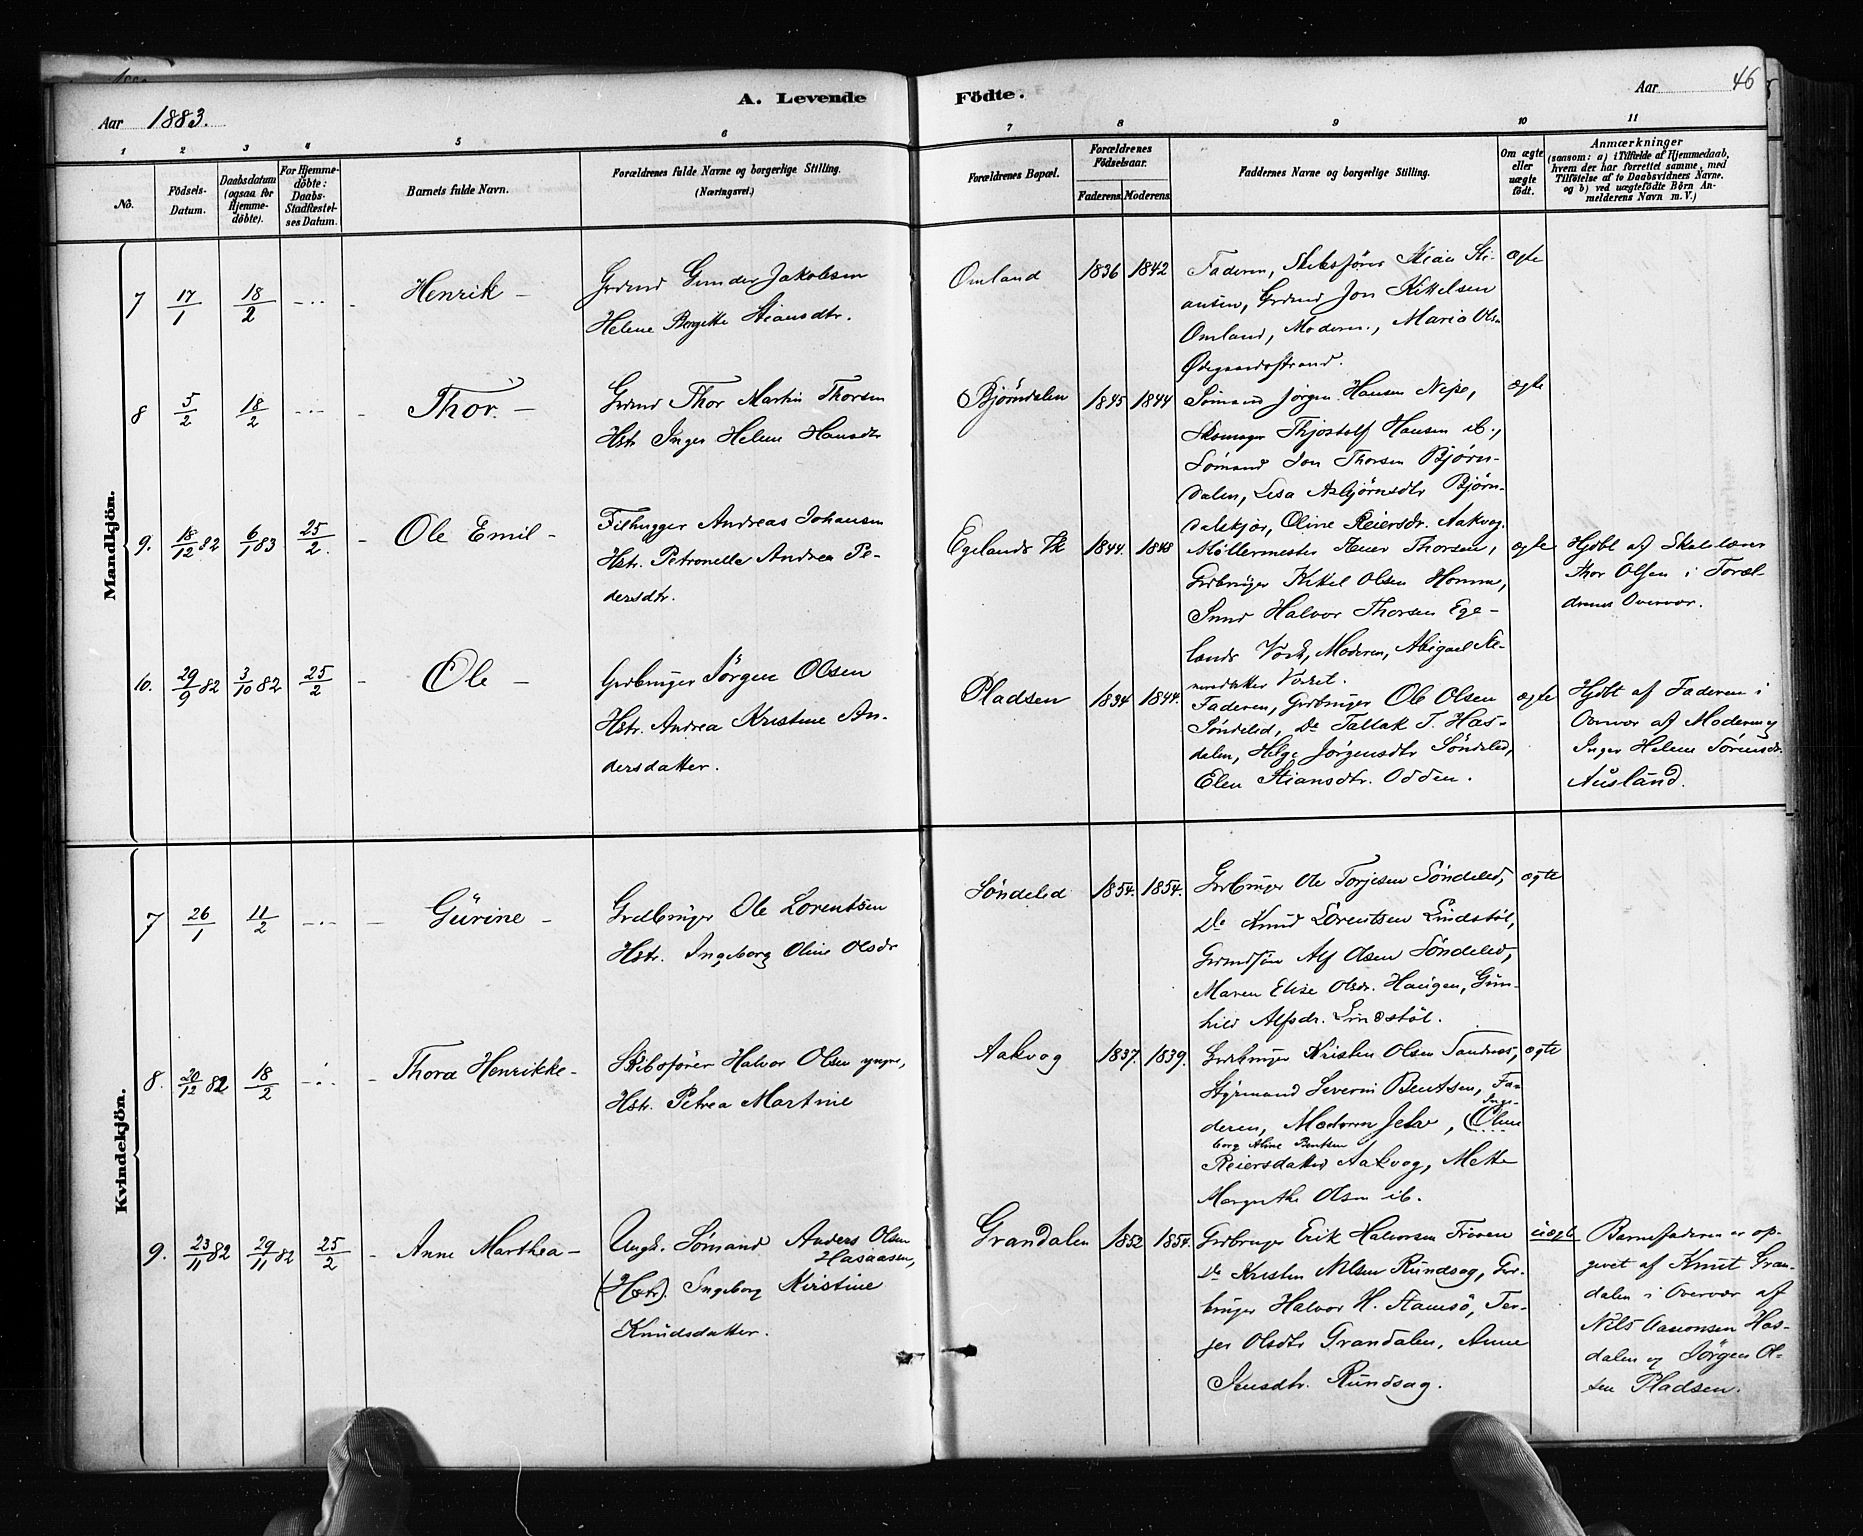 Aar 1883.
A. Levende Födte.
Aar 46
1 2 3 4 5 6 7 8 9 10 11
No.
Födsels-Datum.
Daabsdatum (ogsaa for Hjemme-döbte).
For Hjemme-döbte: Daabs-Stadfæstel-ses Datum.
Barnets fulde Navn.
Forældrenes fulde Navne og borgerlige Stilling.
(Næringsvei.)
Forældrenes Bopæl.
Forældrenes Födselsaar.
Faderens. Moderens.
Faddernes Navne og borgerlige Stilling.
Om ægte eller uægte födt.
Anmærkninger
(saasom: a) i Tilfælde af Hjemmedaab,
hvem der har forrettet samme, med
Tilföielse af to Daabsvidners Navne,
og b) ved uægtefödte Börn An-
melderens Navn m. V.)
Mandkjön.
7 17/1 18/2 Henrik -
Grdmd Gunder Jakobsen
Helene Birgitte Stiansdtr.
Omland 1836 1842
Faderen, Skibsfører Stian Sti-
ansen, Grdmd Jon Kittelsen
Omland, Moderen, Maria Ols.
Ødegaardsstrand.
ægte
8 5/2 18/2 Thor. -
Grdmd Thor Martin Thorsen
Hstr Inger Helene Hansdtr
Bjørndalen 1845 1844
Sømand Jørgen Hansen Nipe,
Skomager Thjostolf Hansen ib.,
Sømand Jon Thorsen Bjørn-
dalen, Lisa Asbjørnsdtr Bjørn-
dalskjær, Oline Reiersdr. Aakvog.
ægte
9. 18/12 82 6/1 83 25/2. - Ole Emil -
Filhugger Andreas Johansen
Hstr. Petronelle Andrea Pe-
dersdtr.
Egelands Vk 1844. 1848
Møllermester Thorsen,
Grdbruger Kittel Olsen Homme,
Smed Halvor Thorsen Ege-
lands Værk, Moderen, Abigael
Værket.
ægte
Hjdbt af Skolelærer
Thor Olsen i Foræl-
drenes Overvær.
10. 29/9 82 3/10 82 25/2 - Ole -
Grdbruger Jörgen Olsen
Hstr. Andrea Kristine An-
dersdatter.
Pladsen 1834 1844.
Faderen, Grdbruger Ole Olsen
Söndeled, Do Tallak T. Has-
dalen, Helge Jörgensdtr Söndeled,
Elen Stiansdtr. Odden.
ægte
Hjdbt af Faderen i
Overvær af Moderen og
Inger Helene Sörensdr.
Ausland.
Kvindekjön.
7 26/1 11/2 - Gurine -
Grdbruger Ole Lorentsen
Hstr. Ingeborg Oline Olsdr
Söndeled 1854. 1854.
Grdbruger Ole Torjesen Söndeled,
Do Knud Lorentsen Lindstöl,
Grdmdsön Alf Olsen Söndeled,
Maren Elise Olsdr. Haugen, Gun-
hild Alfsdr. Lindstöl.
ægte
8. 20/12 82 18/2 - Thora Henrikke -
Skibsfører Halvor Olsen yngre,
Hstr. Petrea Martine
Aakvog 1837. 1839.
Grdbruger Kristen Olsen Sandnes,
Styrmand Severin Bentsen, Fa-
deren, Moderen Jelv, Oline Inge-
borg Aline Bentsen
Reiersdatter Aakvog, Mette
Margrethe Olsen ib.
ægte
9. 23/11 82 29/11 82 25/2 - Anne Marthea -
Ungk. Sömand Anders Olsen
Hasaasen,
(Hstr). Ingeborg Kirstine
Knudsdatter.
Grandalen 1852 1854.
Grdbruger Erik Halvorsen
Do Kristen Nilsen Rundsag, Gr-
bruger Halvor H. Stamsö, Ter-
jer Olsdtr Grandalen, Anne
Jensdtr. Rundsag.
uægte
Barnefaderen er op-
givet af Knut Gran-
dalen i Overvær af
Nils Aanonsen Has-
dalen og Jörgen Ol-
sen Pladsen.